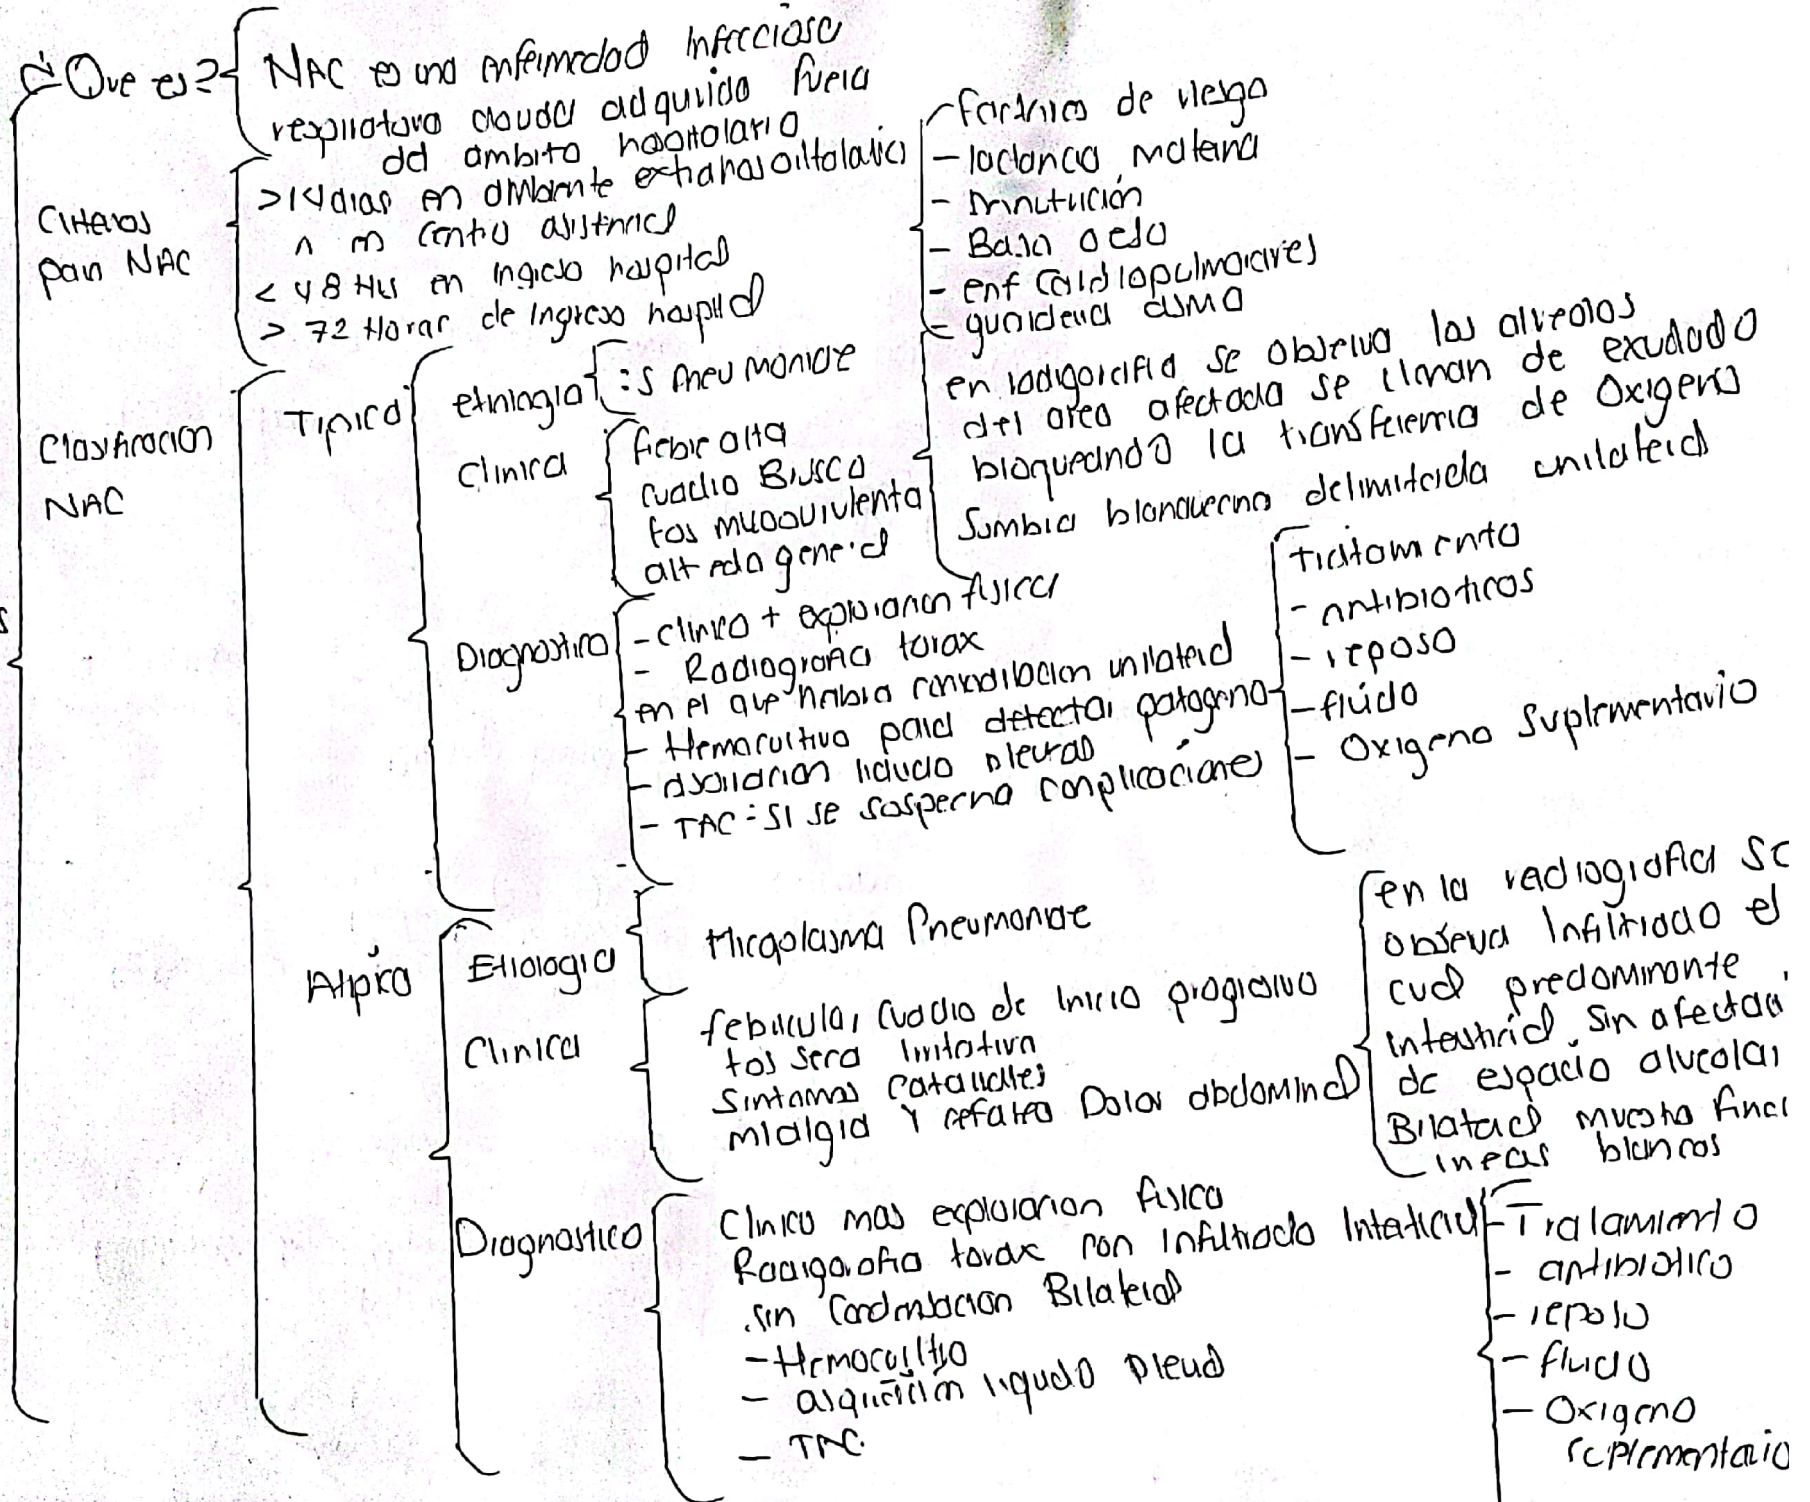 ¿Que es?
NAC es una enfermedad infecciosa
respiratora aguda adquirida fuera
del ambito hospitolario
Criterios
para NAC
>14 dias en ambiente extrahospitalario
n en centro asistencial
< 48 Hrs en ingreso hospital
> 72 Horas de ingreso hospital
factores de riesgo
- lactancia materna
- Desnutrición
- Bajo peso
- enf Cardiopulmonares
- guarderia asma
Clasificacion
NAC
Tipica
etiologia
: S pneumoniae
Clinica
fiebre alta
cuadro Brusco
tos mucopurulenta
alt edo general
en radigorafia se observa los alveolos
del area afectada se llenan de exudado
bloqueando la transferencia de Oxigeno
Sombra blanquecina delimitada unilateral
Diagnostico
- clinico + exploracion fisica
- Radiografia torax
en el que habra condensacion unilateral
- Hemocultivo para detectar patogeno
- aspiracion liquido pleural
- TAC: SI se sospecha complicaciones
tratamiento
- antibioticos
- reposo
- flúido
- Oxigeno Suplementario
Atipica
Etiologia
Micoplasma Pneumonae
Clinica
febricular, cuadro de inicio progresivo
tos seca irritativa
Sintomas catarrales
mialgia Y cefalea Dolor abdominal
en la radiografia se
observa infiltrado el
cual predominante
intesticial, sin afectaa
de espacio alveolar
Bilateral muestra finas
lineas blancas
Diagnostico
Clinico mas exploracion fisica
Radigorafia torax con infiltrado Intesticial
sin Condensacion Bilateral
- Hemocultivo
- liquido Pleural
- TAC.
Tratamiento
- antibiotico
- reposo
- fluido
- Oxigeno
suplementario